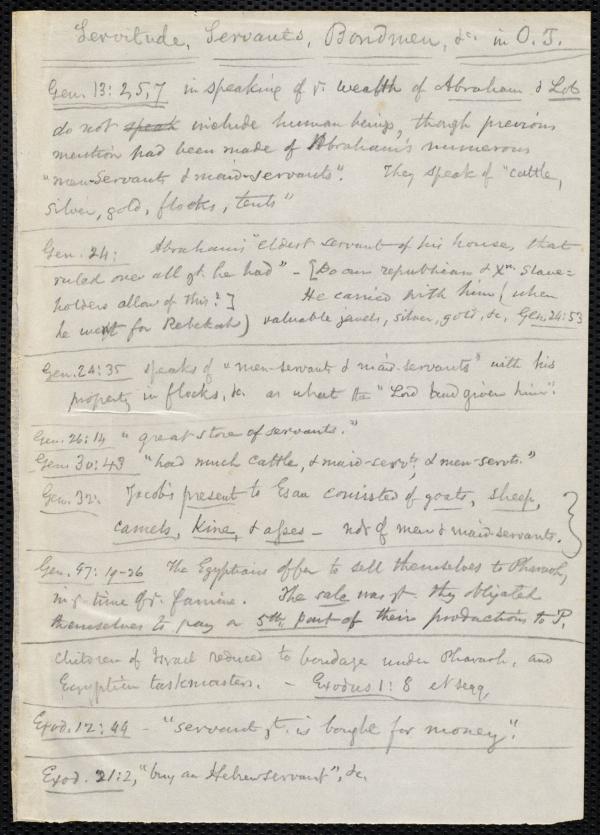 Servitude, Servants, Bondmen, &c. in O. T.
Gen. 13: 2, 5, 7 in speaking of ye wealth of Abraham & Lot
do not speak include human beings, though previous
mention had been made of Abraham's numerous
"men-servants & maid-servants". They speak of "cattle,
silver, gold, flocks, tents"
Gen. 24: Abraham's "eldest servant of his house, that
ruled over all yt he had" - [Do our republican & Xn. slave=
holders allow of this?] He carried with him (when
he went for Rebekah) valuable jewels, silver, gold, &c. Gen. 24:53
Gen. 24:35 speaks of "men-servants & maid-servants" with his
property in flocks, &c. as what the "Lord had given him".
Gen. 26:14 "great store of servants."
Gen. 30:43 "had much cattle, & maid-servts, & men-servts."
Gen. 32. Jacob's present to Esau consisted of goats, sheep,
camels, kine, & asses - not of men & maid-servants.
Gen. 47: 19-26 The Egyptians offer to sell themselves to Pharaoh,
in ye time of ye famine. The sale was yt they obligated
themselves to pay a 5th part of their productions to P.
Children of Israel reduced to bondage under Pharaoh, and
Egyptian taskmasters. - Exodus 1: 8 et seqq.
Exod. 12:44 - "servant yt is bought for money".
Exod. 21:2, "buy an Hebrew servant", &c.